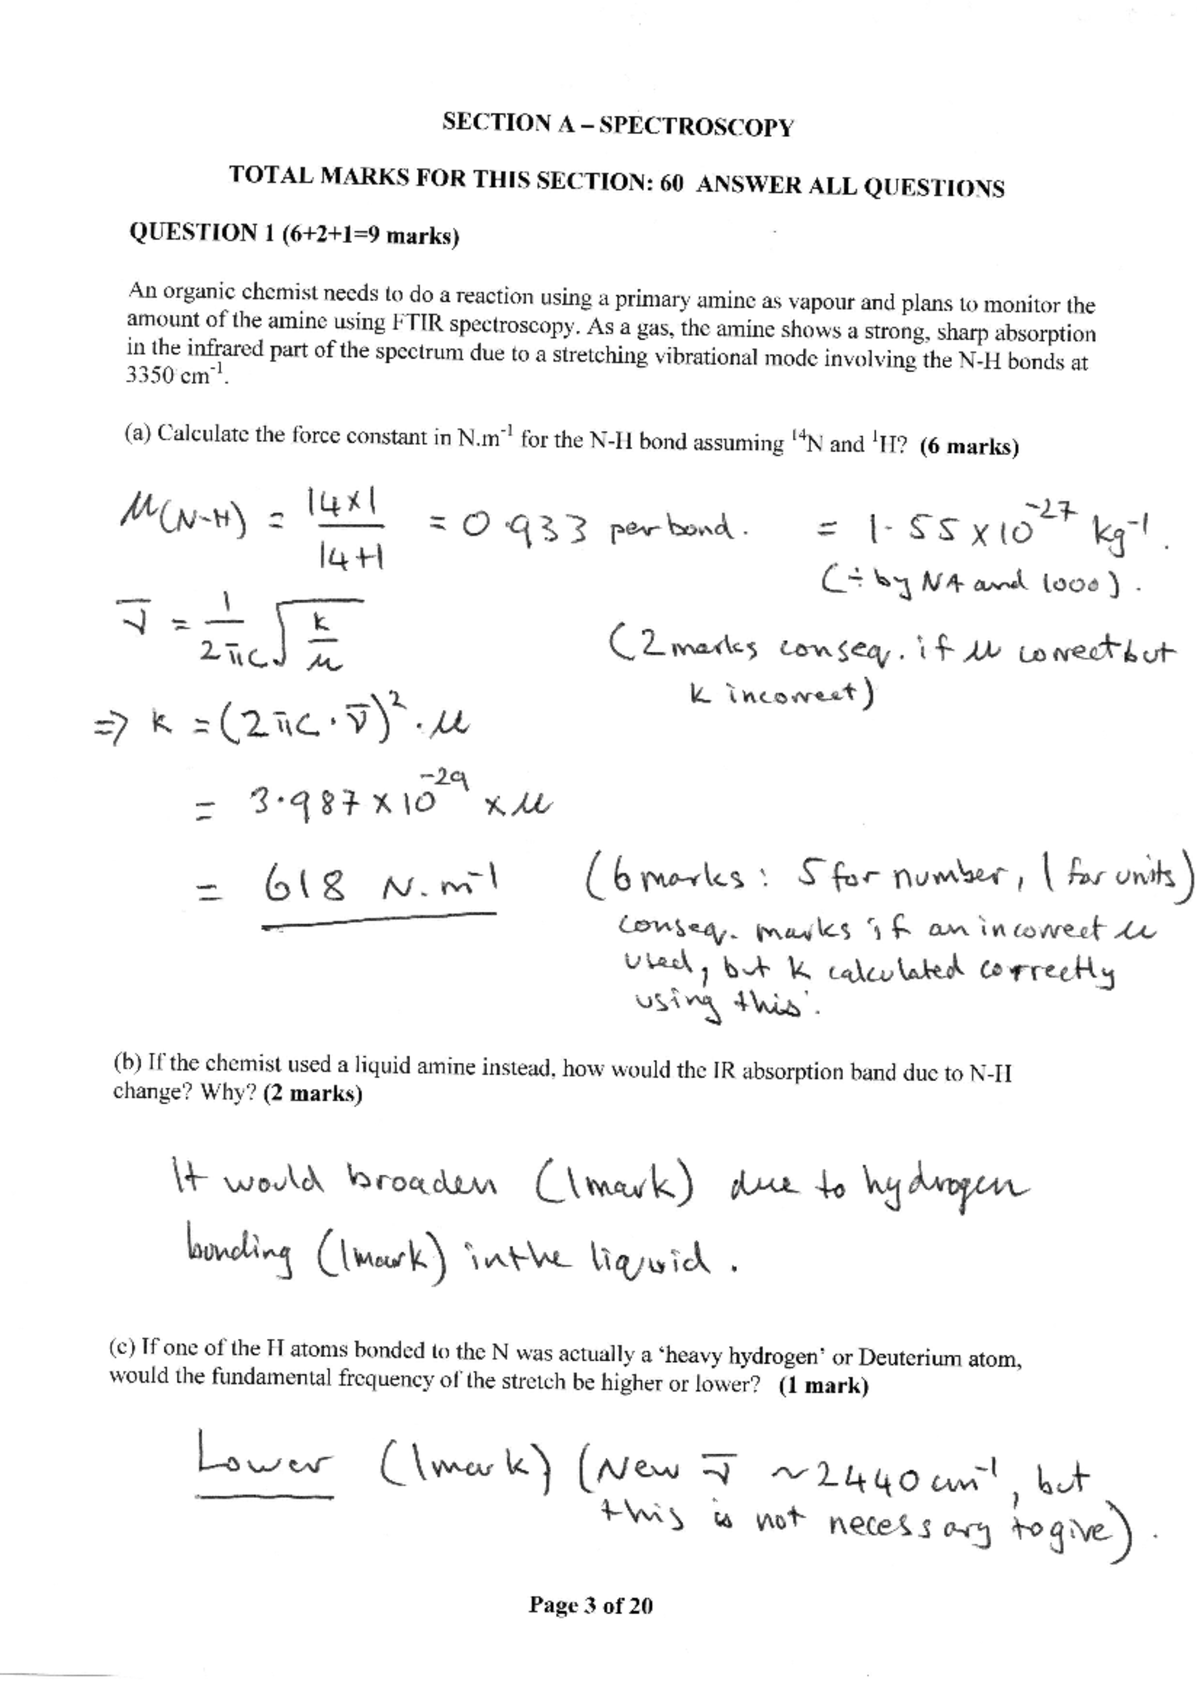 SECTION A – SPECTROSCOPY
TOTAL MARKS FOR THIS SECTION: 60 ANSWER ALL QUESTIONS
QUESTION 1 (6+2+1=9 marks)
An organic chemist needs to do a reaction using a primary amine as vapour and plans to monitor the
amount of the amine using FTIR spectroscopy. As a gas, the amine shows a strong, sharp absorption
in the infrared part of the spectrum due to a stretching vibrational mode involving the N-H bonds at
3350 cm⁻¹.
(a) Calculate the force constant in N.m⁻¹ for the N-H bond assuming ¹⁴N and ¹H? (6 marks)
μ(N-H) = 14×1 / 14+1 = 0.933 per bond. = 1.55 × 10⁻²⁷ kg⁻¹.
(÷ by NA and 1000).
ν̅ = 1/2πc √(k/μ)
(2 marks conseq. if μ correct but
k incorrect)
⇒ k = (2πc·ν̅)².μ
= 3.987 × 10⁻²⁹ × μ
= 618 N.m⁻¹ (6 marks: 5 for number, 1 for units)
conseq. marks if an incorrect μ
used, but k calculated correctly
using this.
(b) If the chemist used a liquid amine instead, how would the IR absorption band due to N-H
change? Why? (2 marks)
It would broaden (1 mark) due to hydrogen
bonding (1 mark) in the liquid.
(c) If one of the H atoms bonded to the N was actually a ‘heavy hydrogen’ or Deuterium atom,
would the fundamental frequency of the stretch be higher or lower? (1 mark)
Lower (1 mark) (New ν̅ ~2440 cm⁻¹, but
this is not necessary to give).
Page 3 of 20